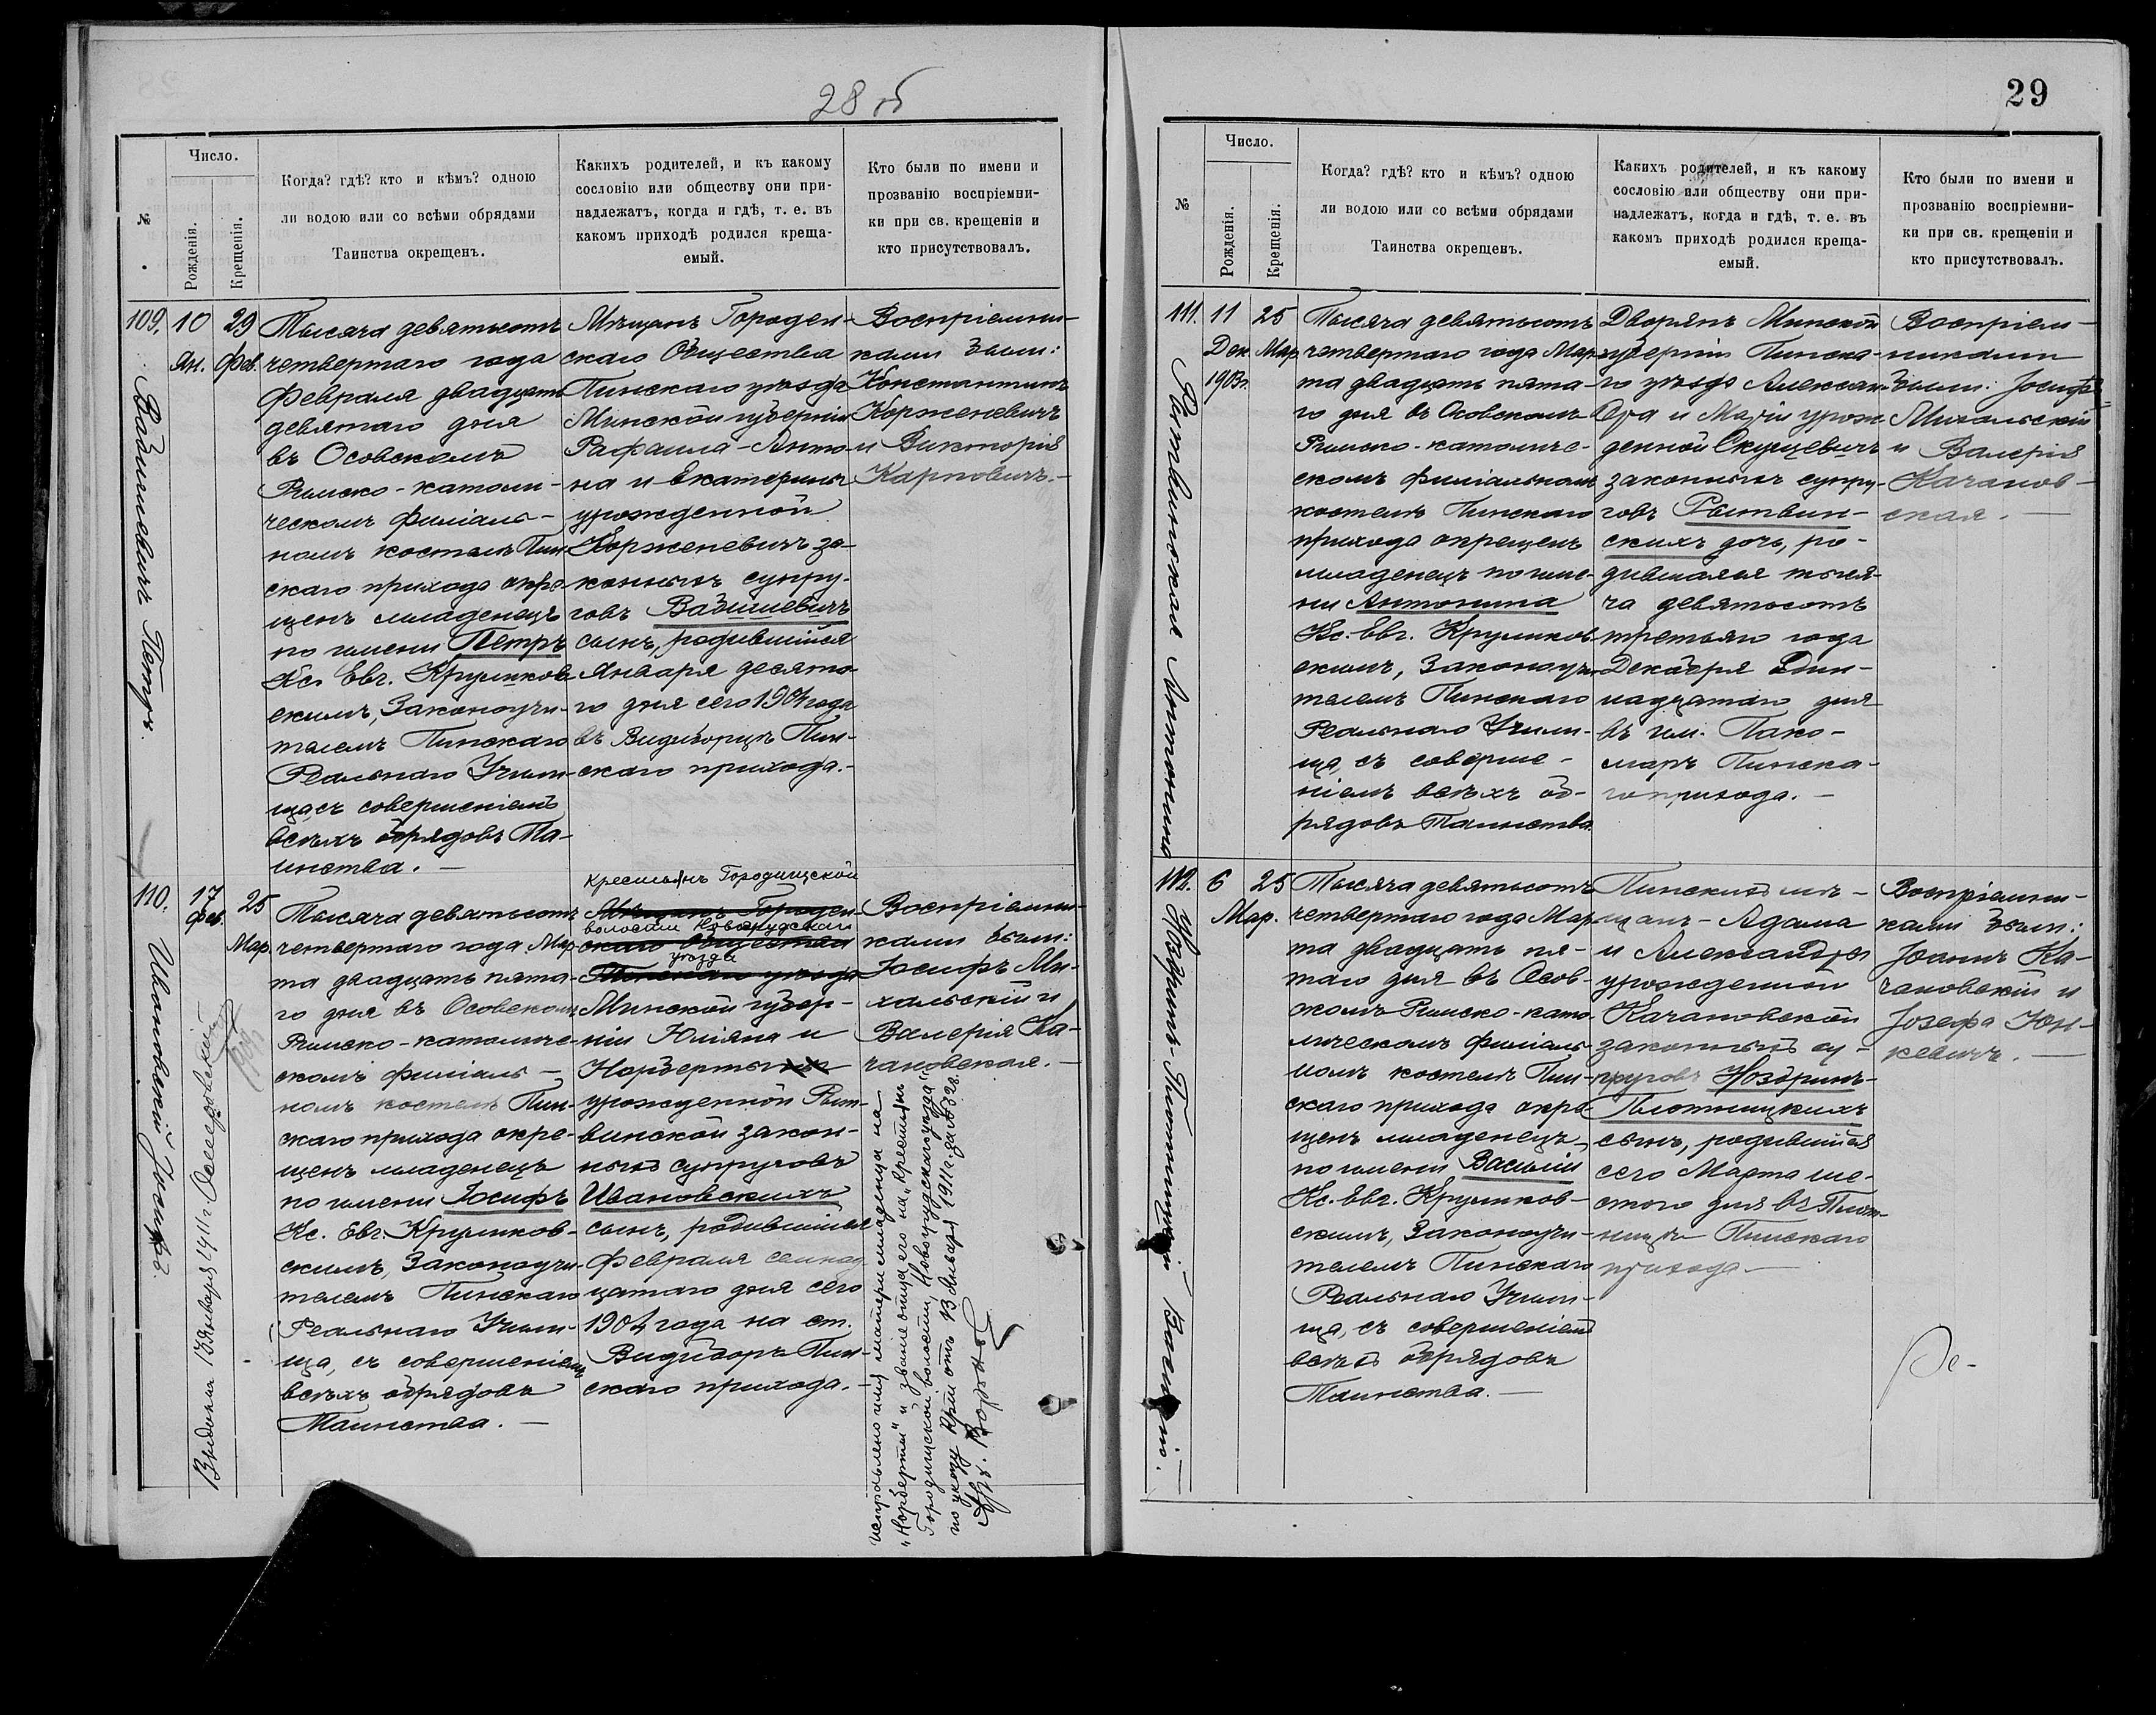 28 об
№
Число.
Рожденія.
Крещенія.
Когда? гдѣ? кто и кѣмъ? одною
ли водою или со всѣми обрядами
Таинства окрещенъ.
Какихъ родителей, и къ какому
сословію или обществу они при-
надлежатъ, когда и гдѣ, т. е. въ
какомъ приходѣ родился креща-
емый.
Кто были по имени и
прозванію воспріемни-
ки при св. крещеніи и
кто присутствовалъ.
109.
10
Ян.
29
Фев.
Тысяча девятьсотъ
четвертаго года
Февраля двадцать
девятаго дня
въ Осовскомъ
Римско-католи-
ческомъ филіаль-
номъ костелѣ Пин-
скаго прихода окре-
щенъ младенецъ
по имени Петръ
Кс. Евг. Крупиков-
скимъ, Законоучи-
телемъ Пинскаго
Реальнаго Учили-
ща, съ совершеніемъ
всѣхъ обрядовъ Та-
инства. —
Мѣщанъ Городен-
скаго Общества
Пинскаго уѣзда
Минской губерніи
Рафаила-Анто-
на и Екатерины
урожденной
Корженевичъ за-
конныхъ супру-
говъ
сынъ, родившійся
Января десята-
го дня сего 1904 года
въ Видиборцѣ Пин-
скаго прихода. —
Воспріемни-
ками были:
Константинъ
Корженевичъ
и Викторія
Карповичъ. —
Петръ.
110.
17
Фев.
25
Мар.
Тысяча девятьсотъ
четвертаго года Мар-
та двадцать пята-
го дня въ Осовскомъ
Римско-католиче-
скомъ филіаль-
номъ костелѣ Пин-
скаго прихода окре-
щенъ младенецъ
по имени Іосифъ
Кс. Евг. Крупиков-
скимъ, Законоучи-
телемъ Пинскаго
Реальнаго Учили-
ща, съ совершеніемъ
всѣхъ обрядовъ
Таинства. —
Крестьянъ Городищской
Мѣщанъ Городен-
волости Новогрудскаго
скаго Общества
уѣзда
Пинскаго уѣзда
Минской губер-
ніи Юліяна и
Норберты
урожденной Рыт-
винской закон-
ныхъ супруговъ
Ивановскихъ
сынъ, родившійся
Февраля семнад-
цатаго дня сего
1904 года на ст.
Видиборъ Пин-
скаго прихода. —
Воспріемни-
ками были:
Іосифъ Ми-
хальскій и
Валерія Ка-
чановская. —
Ивановскій Іосифъ.
Выдана 13 Января 1911 г.
Исправлено имя матери младенца на
„Норберты“ и званіе отца его на „Крестьянъ
Городищской волости, Новогрудскаго уѣзда“
по указу Кріи отъ 13 Января 1911 г. за № 328.
29
№
Число.
Рожденія.
Крещенія.
Когда? гдѣ? кто и кѣмъ? одною
ли водою или со всѣми обрядами
Таинства окрещенъ.
Какихъ родителей, и къ какому
сословію или обществу они при-
надлежатъ, когда и гдѣ, т. е. въ
какомъ приходѣ родился креща-
емый.
Кто были по имени и
прозванію воспріемни-
ки при св. крещеніи и
кто присутствовалъ.
111.
11
Дек.
1903 г.
25
Мар.
Тысяча девятьсотъ
четвертаго года Мар-
та двадцать пята-
го дня въ Осовскомъ
Римско-католиче-
скомъ филіальномъ
костелѣ Пинскаго
прихода окрещенъ
младенецъ по име-
ни Антонина
Кс. Евг. Крупиков-
скимъ, Законоучи-
телемъ Пинскаго
Реальнаго Учили-
ща, съ соверше-
ніемъ всѣхъ об-
рядовъ Таинства.
Дворянъ Минской
губерніи Пинска-
го уѣзда Алексан-
дра и Маріи урож-
денной
законныхъ супру-
говъ Рытвин-
скихъ дочь, ро-
дившаяся тыся-
ча девятьсотъ
третьяго года
Декабря Один-
надцатаго дня
въ им.
Пинска-
го прихода. —
Воспріем-
никами
были: Іосифъ
Михальскій
и Валерія
Качанов-
ская. —
Рытвинская Антонина
112.
6
25
Мар.
Тысяча девятьсотъ
четвертаго года Мар-
та двадцать пя-
таго дня въ Осов-
скомъ Римско-като-
лическомъ филіаль-
номъ костелѣ Пин-
скаго прихода окре-
щенъ младенецъ
по имени Василій
Кс. Евг. Крупиков-
скимъ, Законоучи-
телемъ Пинскаго
Реальнаго Учили-
ща, съ совершеніемъ
всѣхъ обрядовъ
Таинства. —
Пинскихъ мѣ-
щанъ — Адама
и Александры
урожденной
Качановской
законныхъ су-
пруговъ Ноздринъ-
Плотницкихъ
сынъ, родившійся
сего Марта ше-
стого дня въ Плот-
ницѣ Пинскаго
прихода —
Воспріемни-
ками были:
Іоаннъ Ка-
чановскій и
Іозефа Юн-
кевичъ. —
Ноздринъ-Плотницкій Василій. —